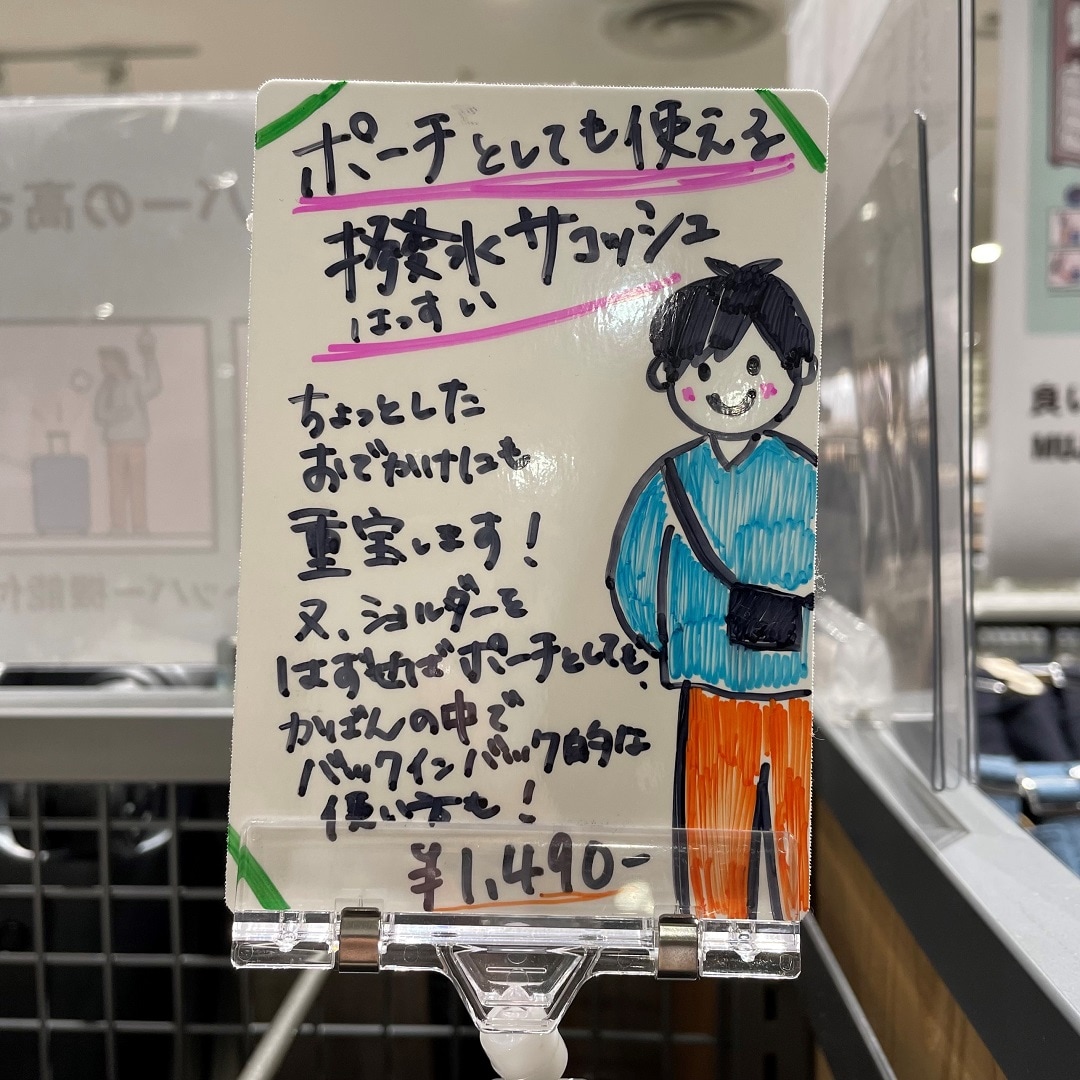 ポーチとしても使える
撥水サコッシュ
はっすい
ちょっとした
おでかけにも
重宝します!
又、ショルダーを
はずせばポーチとしても、
かばんの中で
バックインバック的な
使い方も!
¥1,490-
バーの高さ
ッパー機能付
良い
MUJ